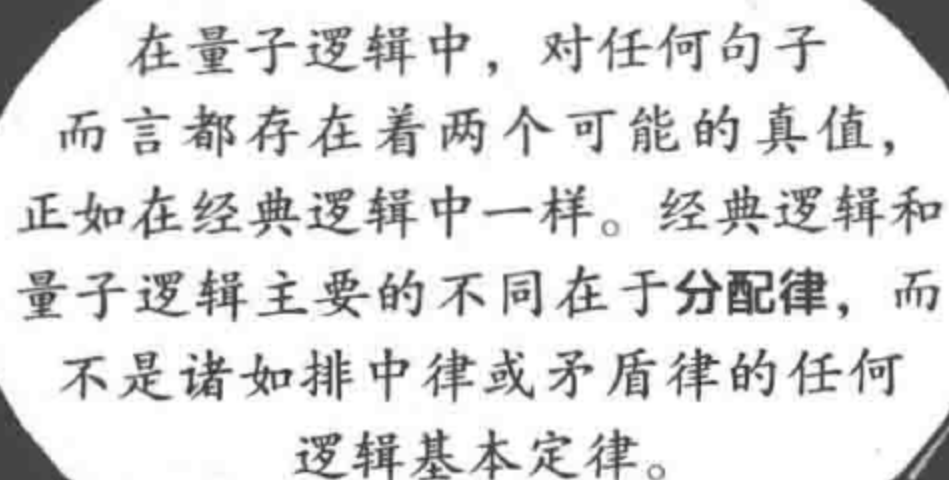 在量子逻辑中，对任何句子
而言都存在着两个可能的真值，
正如在经典逻辑中一样。经典逻辑和
量子逻辑主要的不同在于分配律，而
不是诸如排中律或矛盾律的任何
逻辑基本定律。